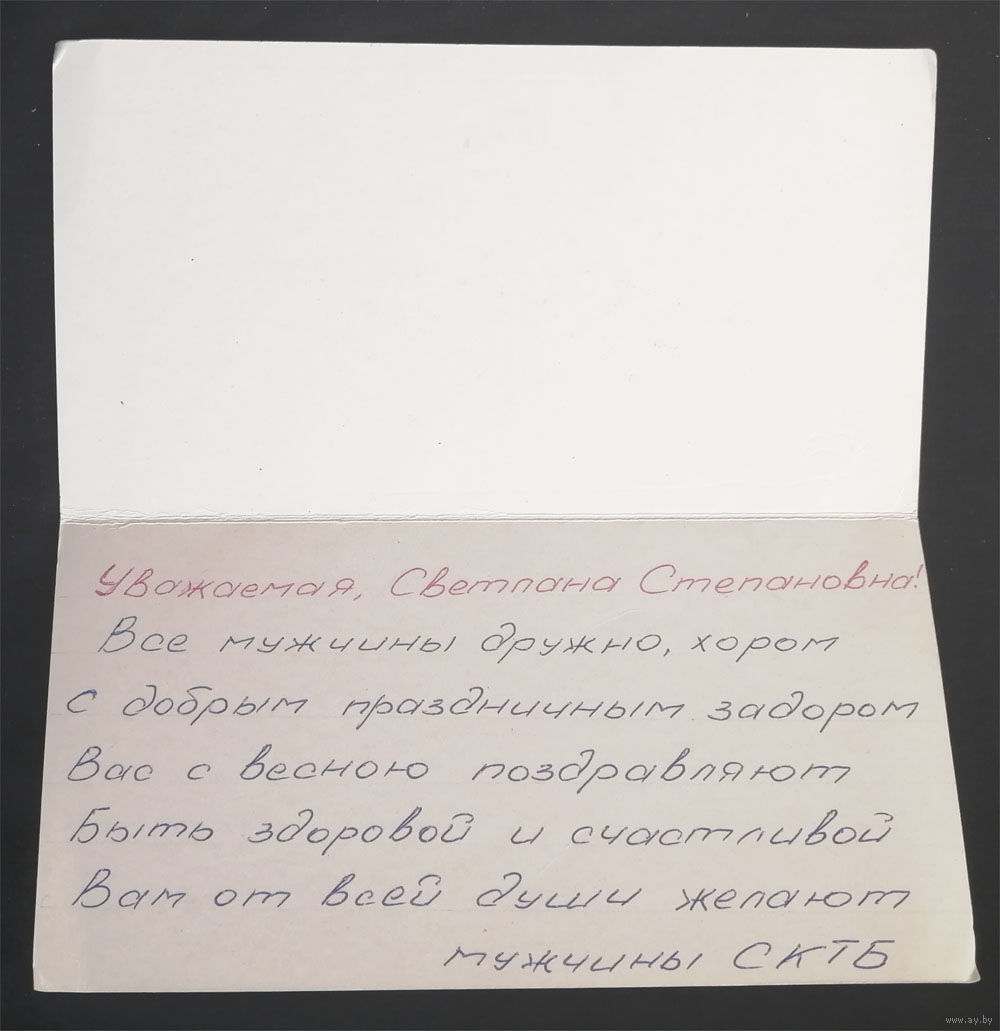 Уважаемая, Светлана Степановна!
Все мужчины дружно, хором
с добрым праздничным задором
Вас с весною поздравляют
Быть здоровой и счастливой
Вам от всей души желают
мужчины СКТБ
www.ay.by